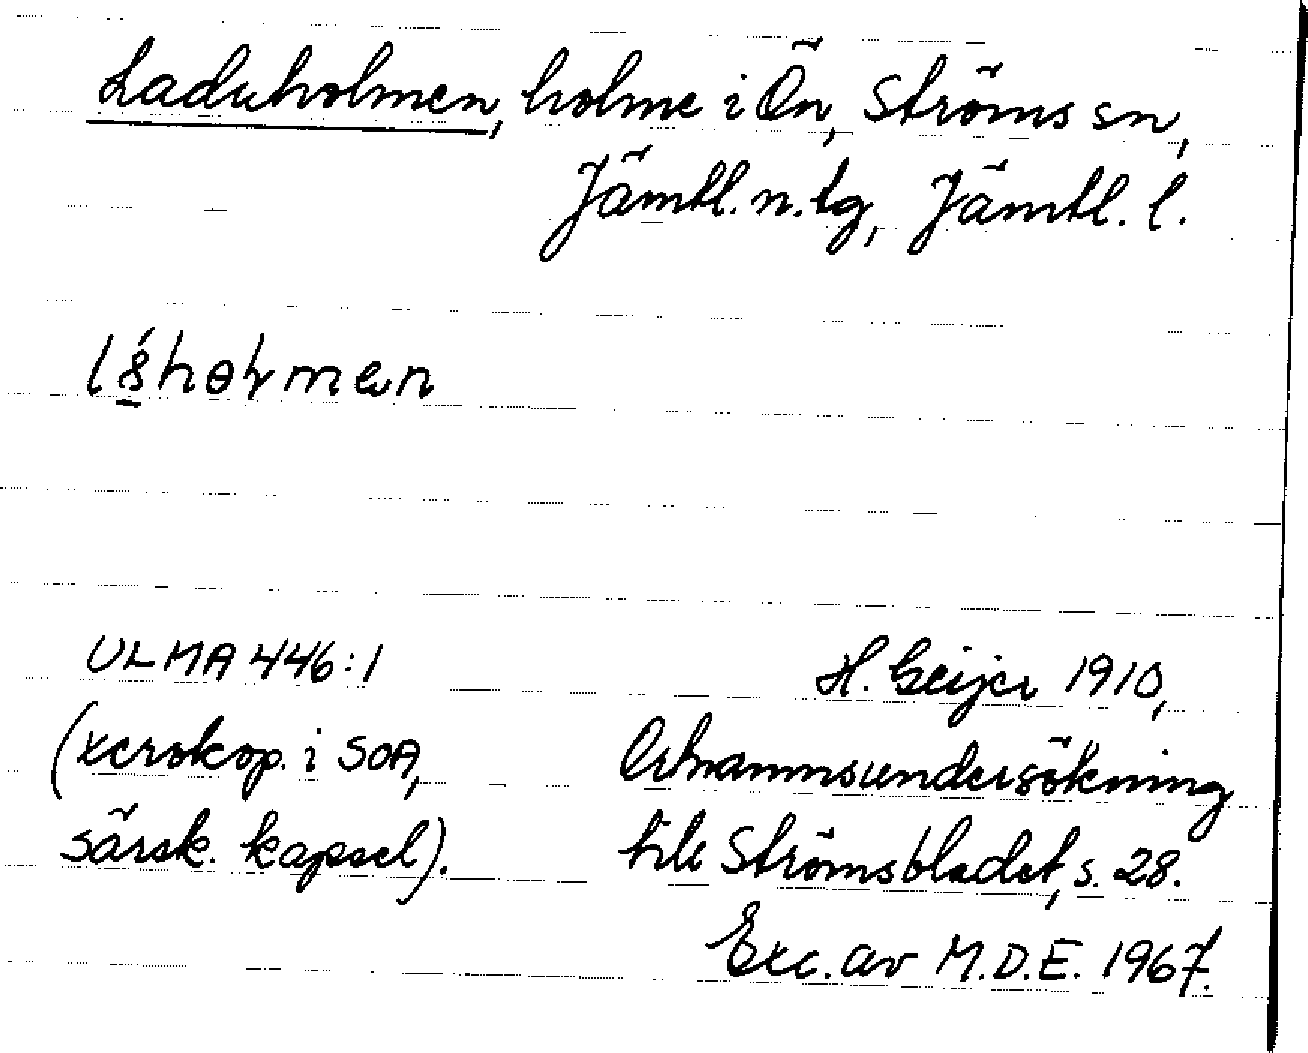 Laduholmen, holme i Ön, Ströms sn,
Jämtl. n. tg, Jämtl. l.
ULMA 446:1
H. Geijer 1910,
(xerokop. i SOA,
Ortnamnsundersökning
särsk. kapsel).
till Strömsbladet, s. 28.
Exc. av M.D.E. 1967.